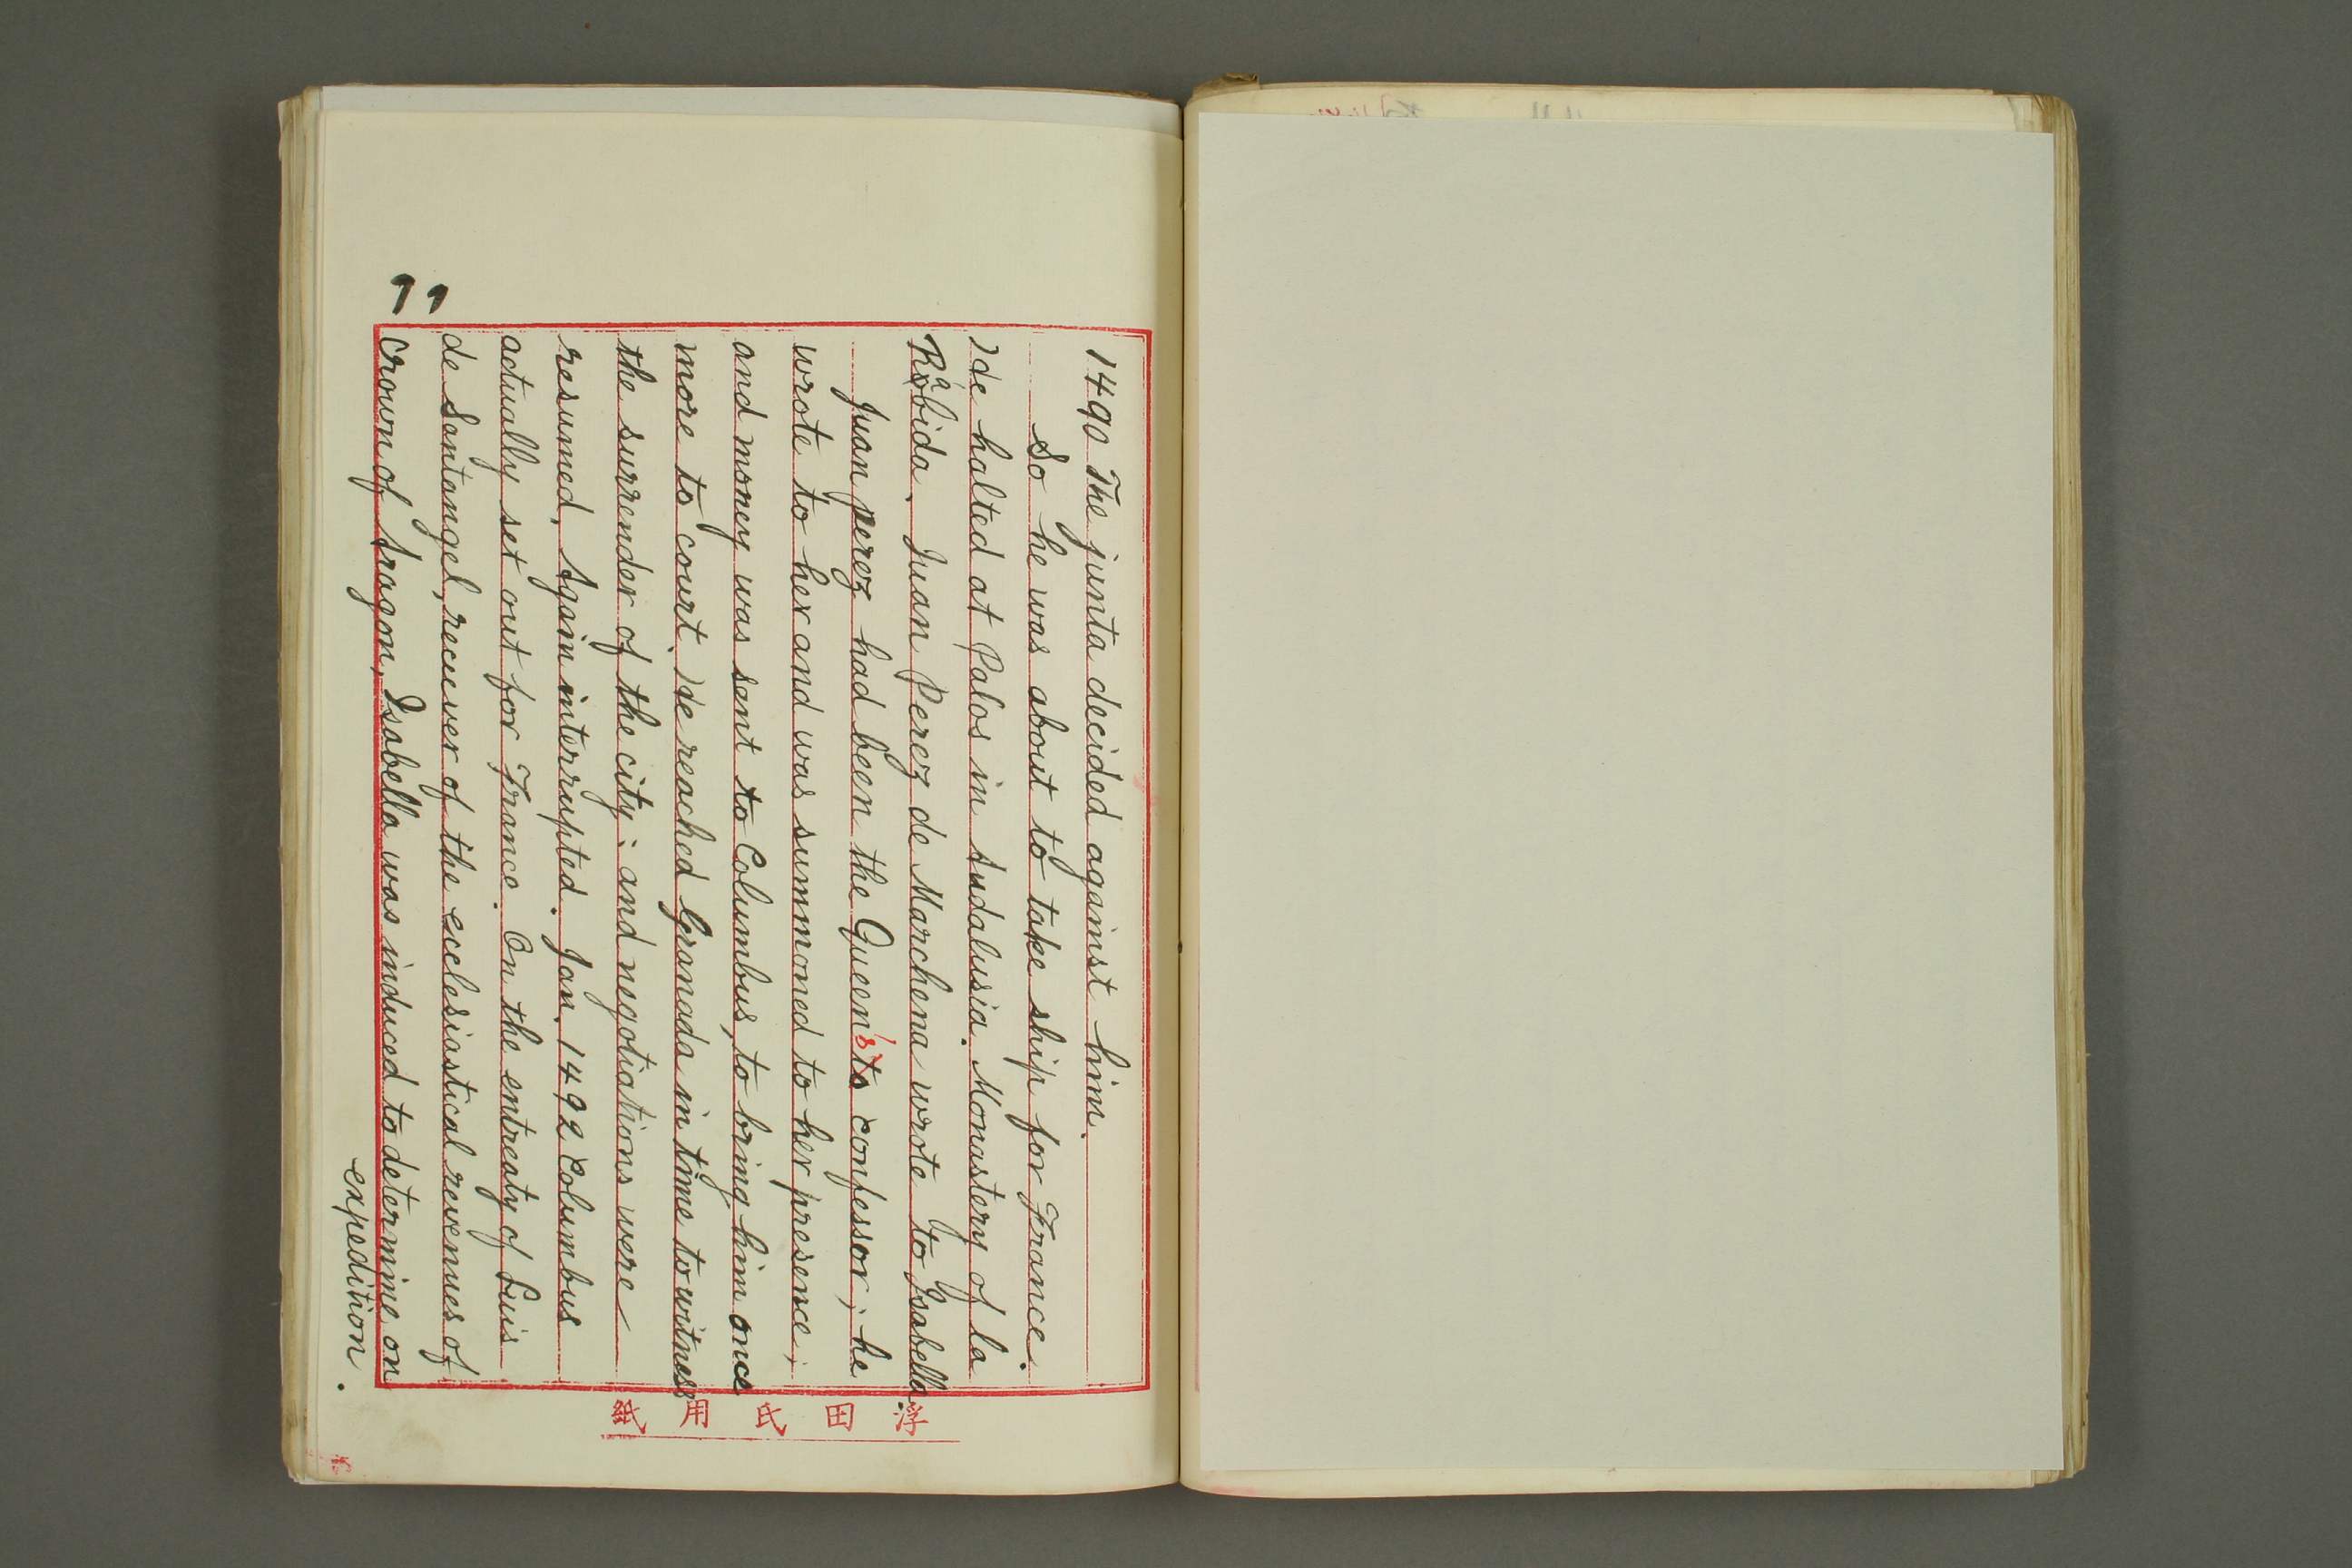 77
1490 The junta decided against him.
So he was about to take ship for France.
He halted at Palos in Andalusia. Monastery of la
Rabida. Juan Perez de Marchena wrote to Isabella.
Juan perez had been the Queen's confessor; he
wrote to her and was summoned to her presence,
and money was sent to Columbus, to bring him once
more to court. He reached Granada in time to witness
the surrender of the city: and negotiations were
resumed. Again interrupted. Jan. 1492 Columbus
actually set out for France. On the entreaty of Luis
de Santangel, recuver of the ecclesiastical revenues of
crown of Aragon, Isabella was induced to determine on
expedition.
浮田氏用紙